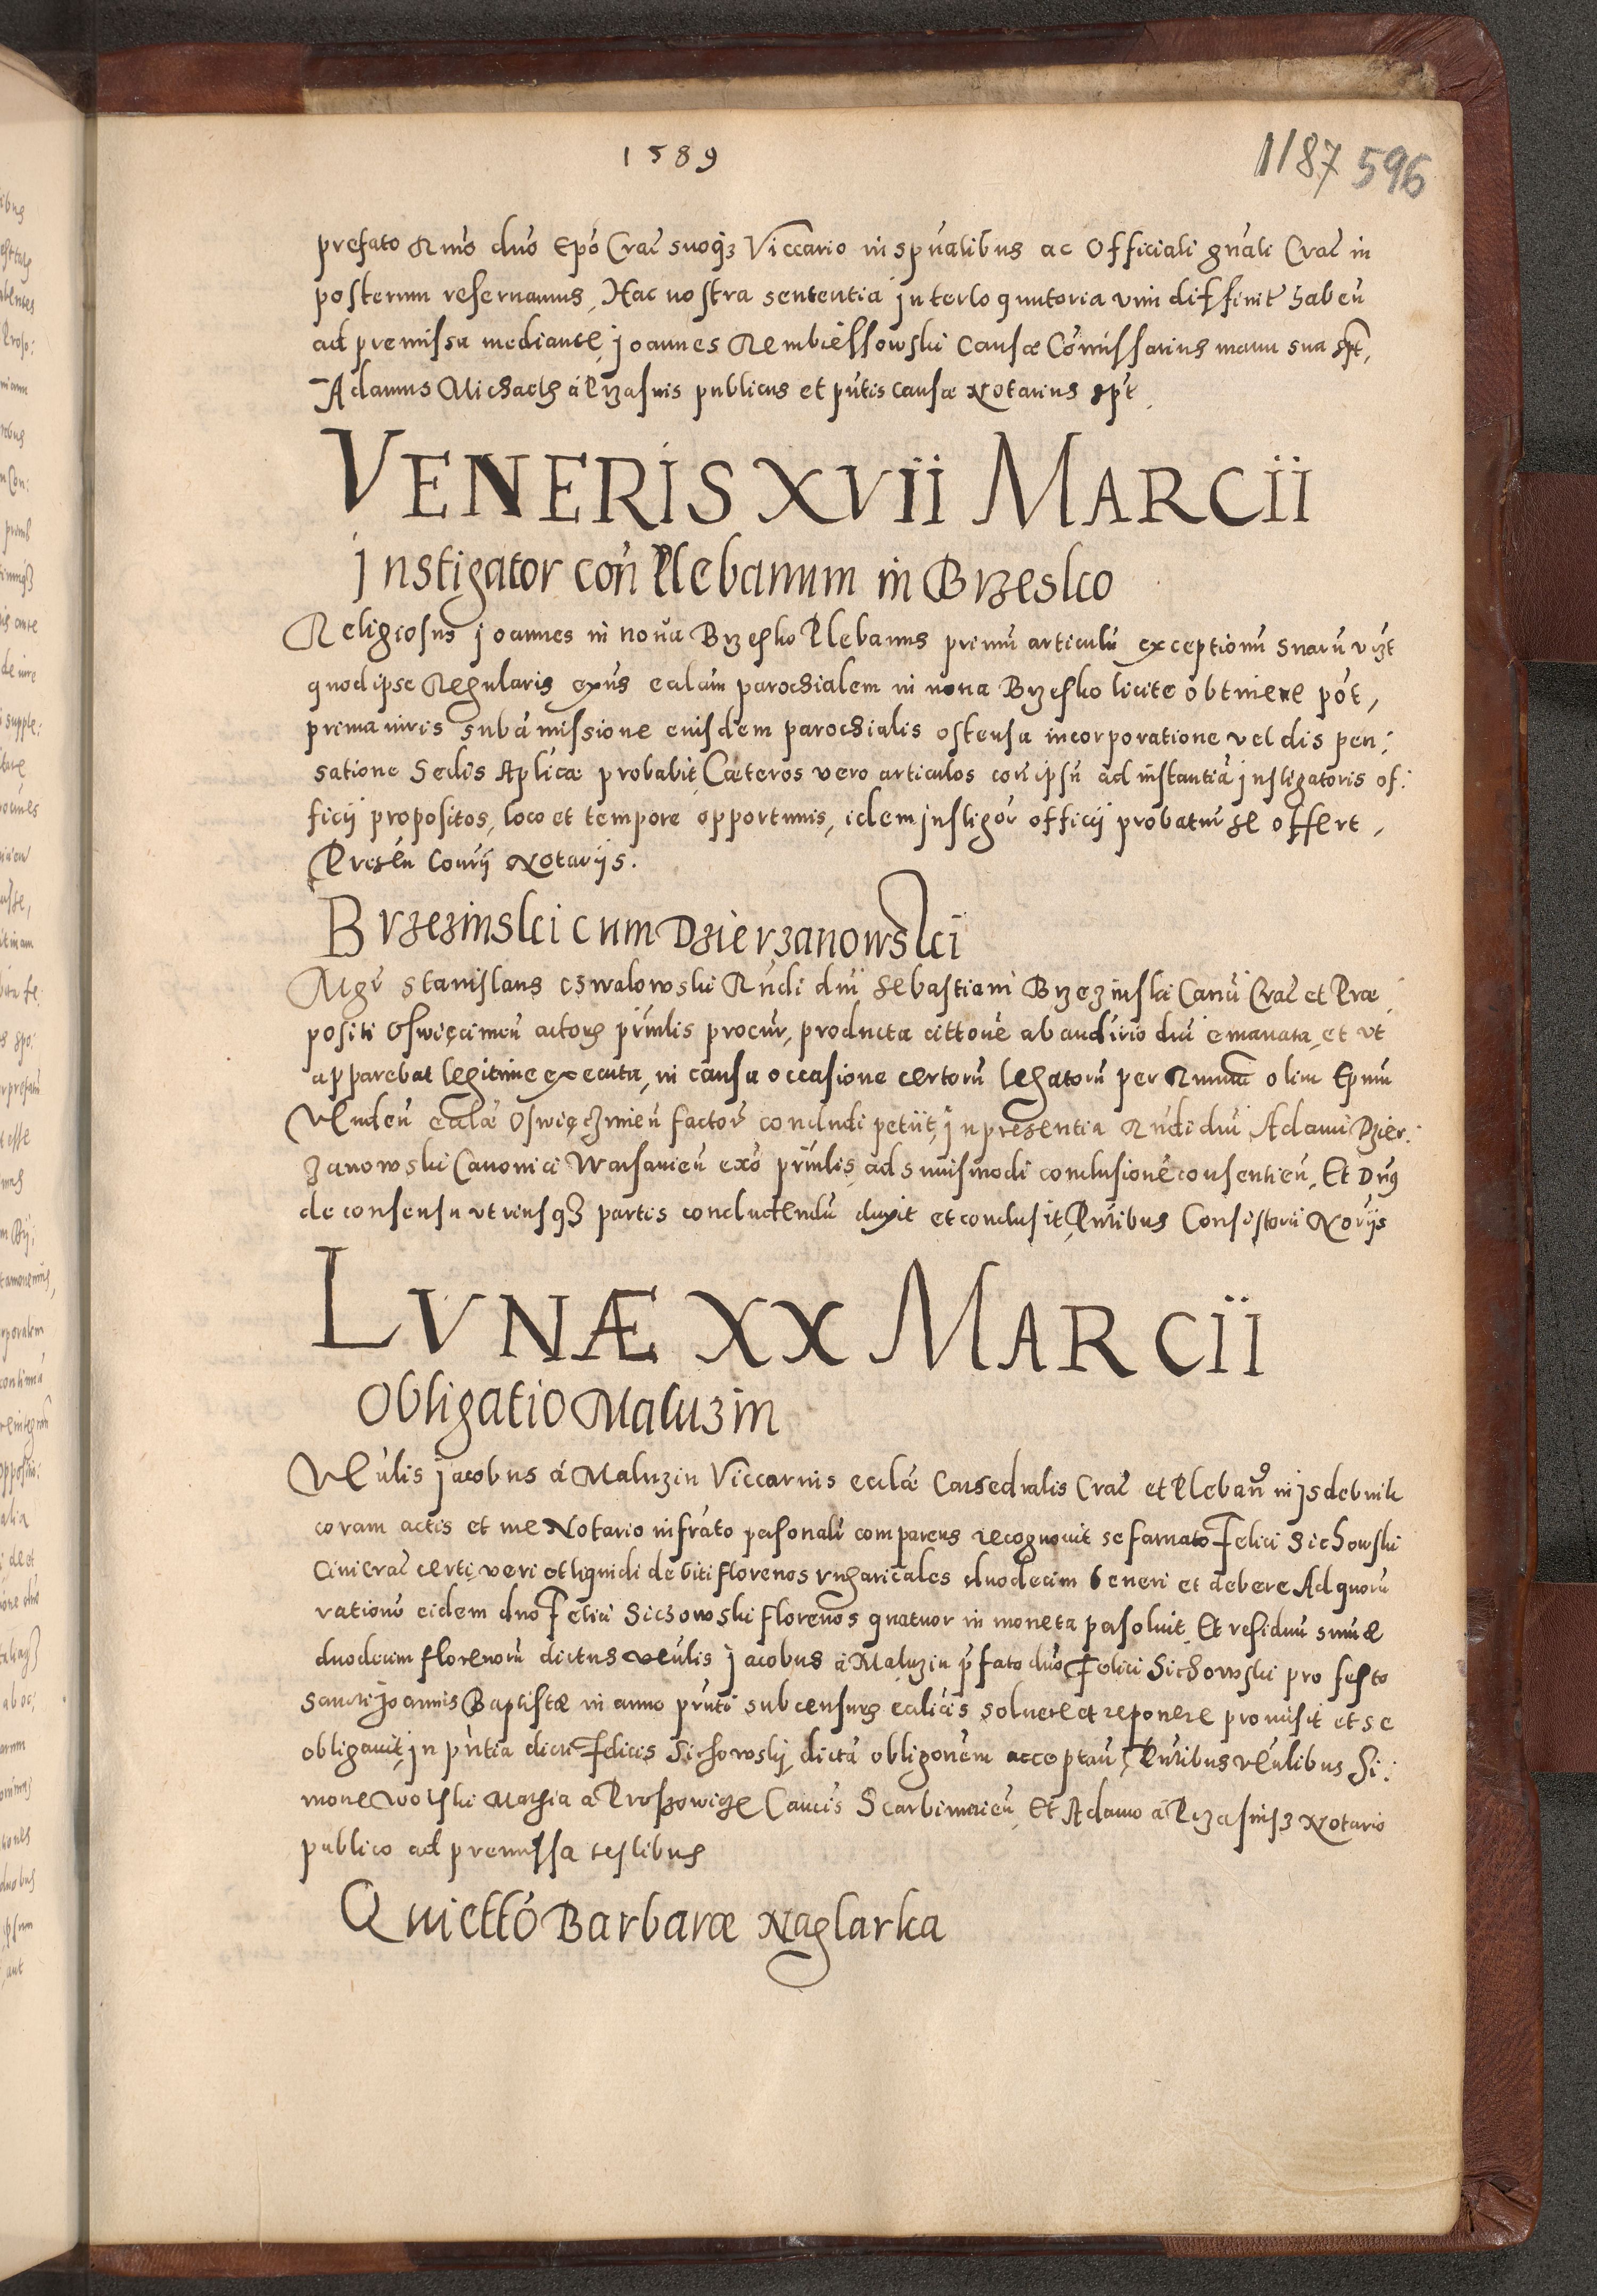 1589
1187 596
prefato Rmo dno Epo Crac suoqȝ Viccario in spualibus ac Officiali gnali Crac in
posterum reseruamus, Hac nostra sententia interloquutoria vim diffinit habeñ
ad premissa mediante, Joannes Rembiessowski Causæ Comissarius manu sua spt,
Adamus Michaelis á Przasnis publicus et pntis causæ Notarius spt
VENERIS XVII MARCII
Instigator con Plebanum in Brzesko
Religiosus Joannes in noua Brzesko Plebanus primũ articulũ exceptionũ suarũ vizt
quod ipse Regularis exñs eclam parochialem in noua Brzesko licite obtinere pot,
prima iuris sub amissione eiusdem parochialis ostensa incorporatione vel dispen:
satione Sedis Aplicæ probabit, Cæteros vero articulos con ipsũ ad instantiã instigatoris of:
ficij propositos, loco et tempore opportunis, idem instigor officij probatur se offert,
Preseñ Conrij Notarijs.
Brzezinski cum Dzierzanowski
Mgr Stanislaus Cswalowski Rndi dni Sebastiani Brzezinski Canci Crac et Præ
positi Oswięcimeñ actoris prinlis procur, producta cittone ab audirio dni emanata, et vt
apparebat legitime executa, in causa occasione certorũ legatorũ per Rmum olim Epum
Vendeñ eclæ Oswięczimeñ factor concludi petiit, In presentia Rndi dni Adami Dzier:
zanowski Canonici Warsauieñ exo prinlis, ad suiusmodi conclusionẽ consentieñ, Et Dnus
de consensu vtriusqȝ partis concludendũ duxit et conclusit, Pntibus Consistorii Norijs
LVNÆ XX MARCII
Obligatio Maluzin
Venlis Jacobus á Maluzin Viccarius eclæ Cathedralis Crac et Plebanus in
coram actis et me Notario infrato personalr comparens recognouit se famato Felici Sichowski
Ciui Crac certi, veri et liquidi debiti florenos vngaricales duodecim teneri et debere Ad quorũ
rationẽ eidem dno Felici Sichowski florenos quatuor in moneta persoluit, Et residuũ sumæ
duodecim florenorũ dictus Venlis Jacobus á Maluzin pfato dno Felici Sichowski pro festo
Sancti Joannis Baptistæ in anno pnti sub censuris eclicis soluere et reponere promisit et se
obligauit, in pntia dicti Felicis Sichowskj, dictã obligonem acceptañ, Pntibus Venlibus Si:
mone Wolski Mathia a Proszowicze Cancis Scarbimirieñ, Et Adamo á Przasnisz Notario
publico ad premissa testibus
Quictto Barbaræ Naglarka